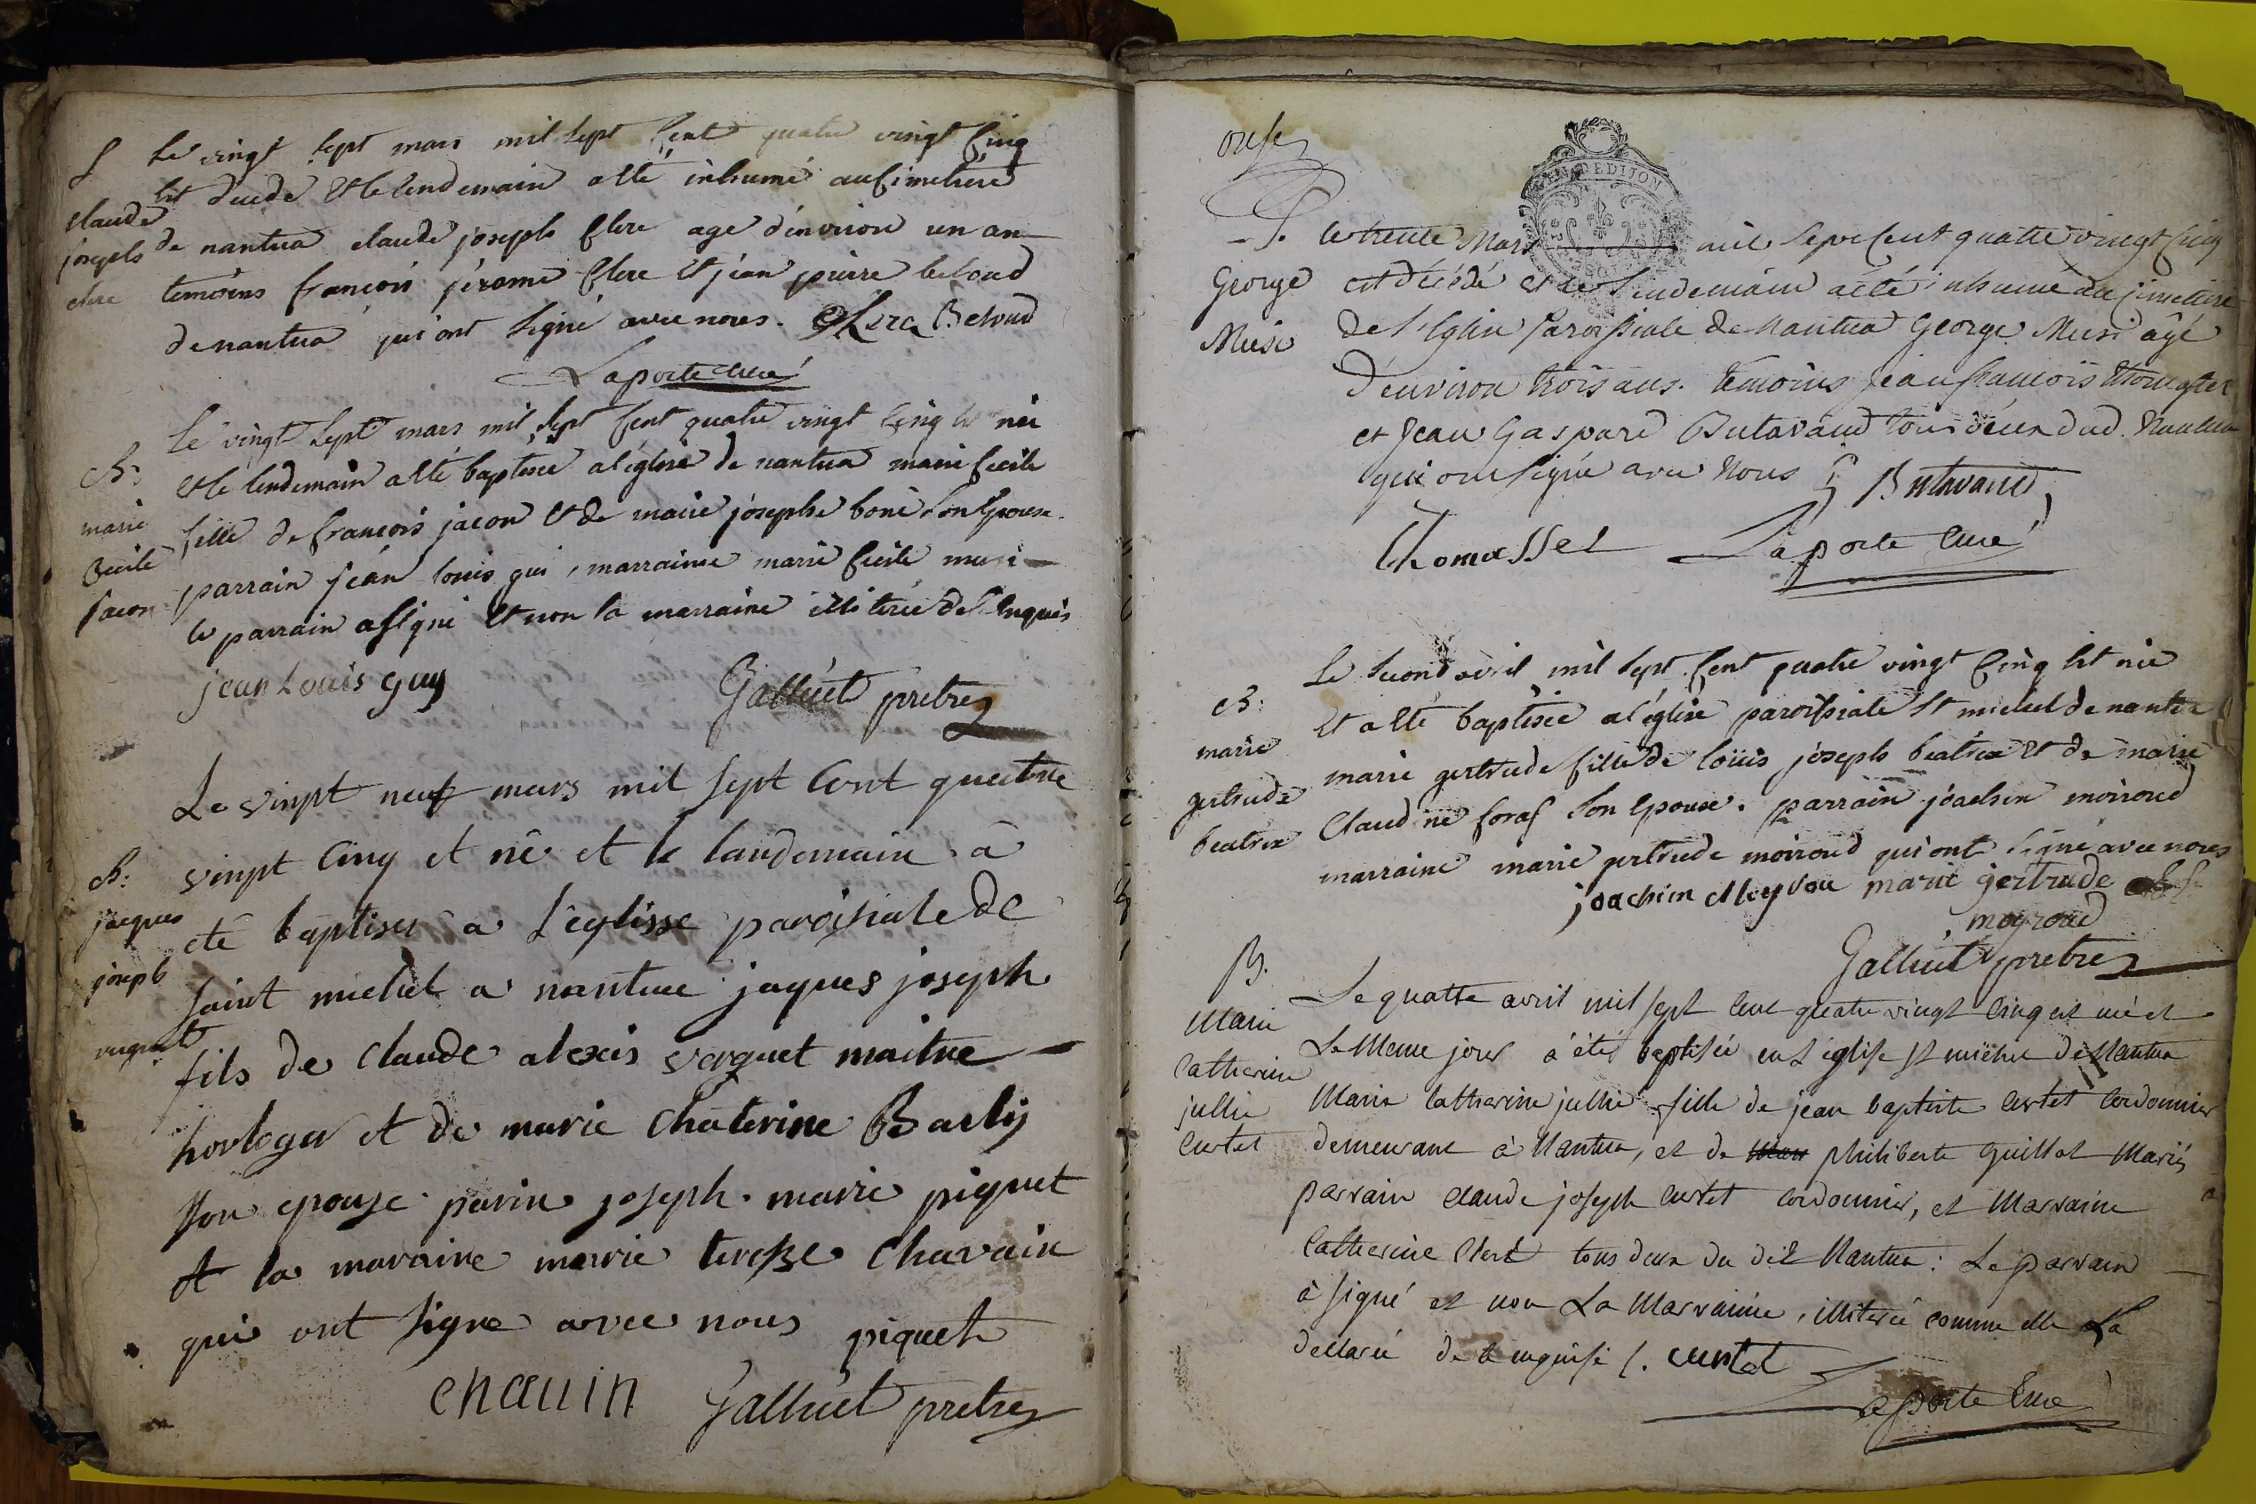 S
claude
joseph
clere
Le vingt sept mars mil sept cent quatre vingt cinq
est decede et le lendemain a été inhumé au cimetiere
de nantua claude joseph clere age d'environ un an
temoins françois jérome clere et jean pierre beloud
de nantua qui ont signé avec nous. Clerc Beloud
Laporte curé
B:
marie
cecile
jacon
Le vingt sept mars mil sept cent quatre vingt cinq est née
et le lendemain a été baptisée a l'églisse de nantua marie cecile
fille de françois jacon et de marie josephe boni son epouse
parrain jean louis gui, marraine marie cecile musi
le parrain a signé et non la marraine illiterée de ce enquis
jean Louis guy Galliet pretre
B:
jacques
joseph
vuguet
Le vinpt neuf mars mil sept cent queatre
vinpt cinq et né et le landemain a
eté baptiser a l'eglisse paroisiale de
saint michel a nantua jaques joseph
fils de claude alexis verguet maitre
horloger et de marie chaterine Barly
son epouse parin joseph marie piquet
et la maraine marie teresse chavain
qui ont signe avec nous piquet
chauin Galliet pretre
S.
George
Musi
GEN. DE DIJON
Le trente Mars mil sept cent quatre vingt cinq
est décédé et le lendemain a été inhumé au cimetiere
de l'Eglise paroissiale de Nantua George Musi âgé
d'environ trois ans. temoins jean françois thomasset
et Jean Gaspard Butavand tous deux dud. Nantua
qui ont signé avec Nous Butavand
Thomasset Laporte curé
B:
marie
gertrude
beatrix
Le second avril mil sept cent quatre vingt cinq est née
et a été baptisée a l'église paroissiale st michel de nantua
marie gertrude fille de loüis joseph beatrix et de marie
claudine foraf son epouse. parrain joachim moiroud
marraine marie gertrude moiroud qui ont signé avec nous
joachim Meyrou marie gertrude
moyroud
Galliet pretre
B.
Marie
Catherine
jullie
Curtet
Le quatre avril mil sept cent quatre vingt cinq est née et
Le Meme jour a été baptisée en l'église st michel de Nantua
Marie Catherine jullie fille de jean baptiste Curtet Cordonnier
demeurant à Nantua, et de philiberte Guillot Mariés
parrain claude joseph Curtet cordonnier, et Marraine
Catherine Clerc tous deux du dit Nantua: Le parrain
à signé et non La Marraine, illiterée comme elle La
declaré de ce enquise C. Curtet
Laporte Curé